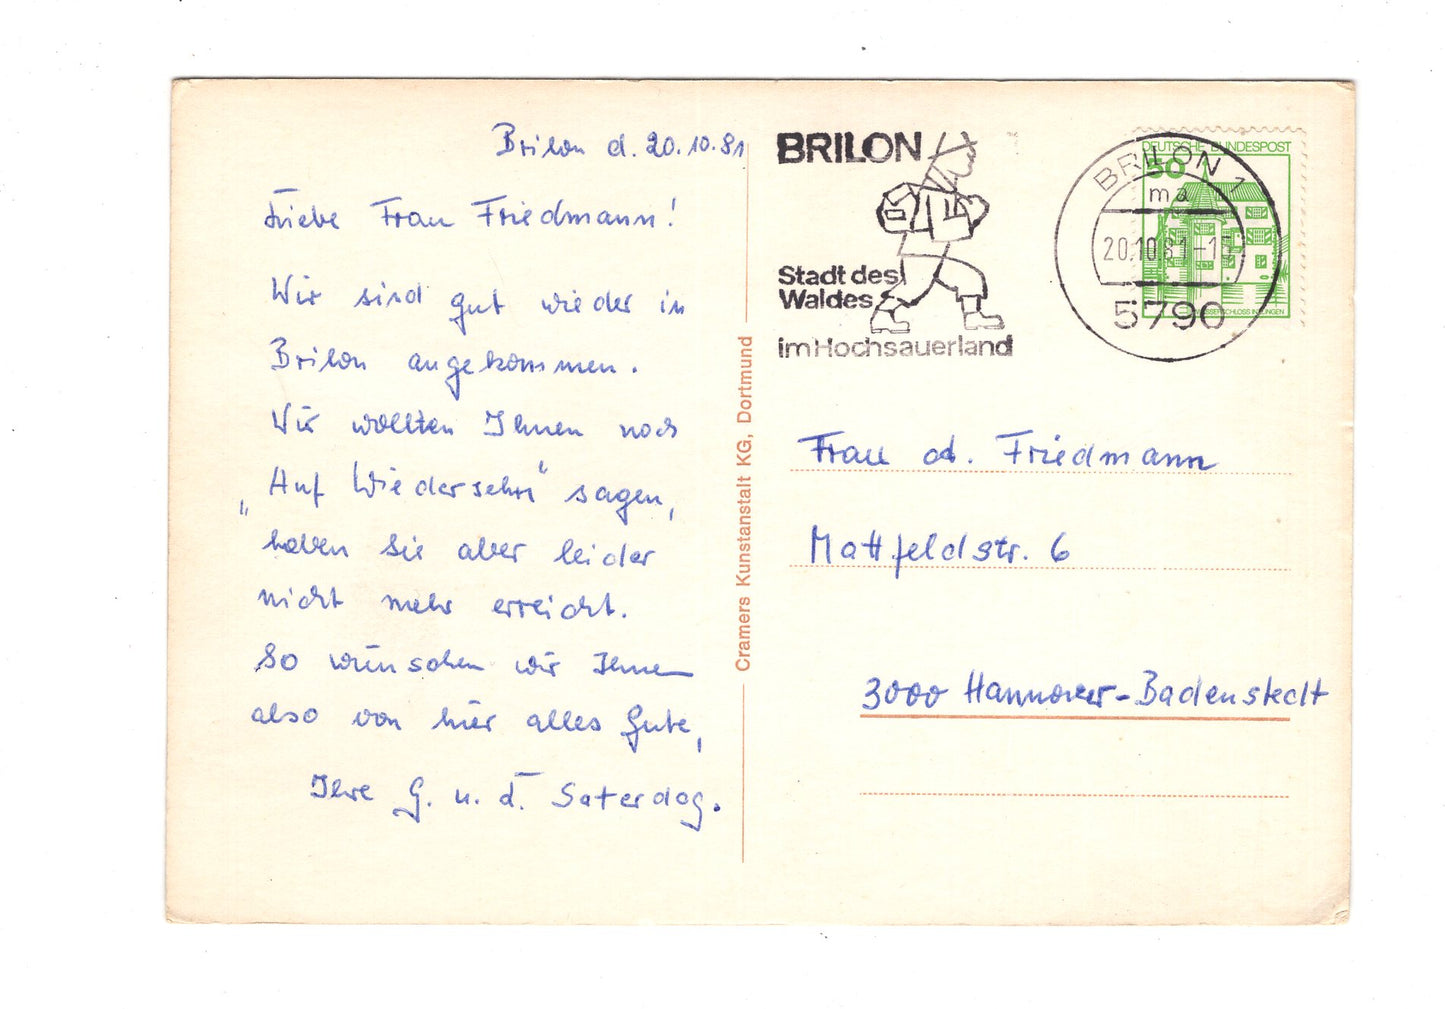 Brilon d. 20.10.81
Liebe Frau Friedmann!
Wir sind gut wieder in
Brilon angekommen.
Wir wollten Ihnen noch
„Auf Wiedersehn“ sagen,
haben Sie aber leider
nicht mehr erreicht.
So wünschen wir Ihnen
also von hier alles Gute,
Ihre G. u. d. Saterdag.
Cramers Kunstanstalt KG, Dortmund
BRILON
Stadt des
Waldes
im Hochsauerland
DEUTSCHE BUNDESPOST
50
WASSERSCHLOSS INZLINGEN
BRILON 1
ma
20.10.81-15
5790
Frau A. Friedmann
Mattfeldstr. 6
3000 Hannover-Badenstedt